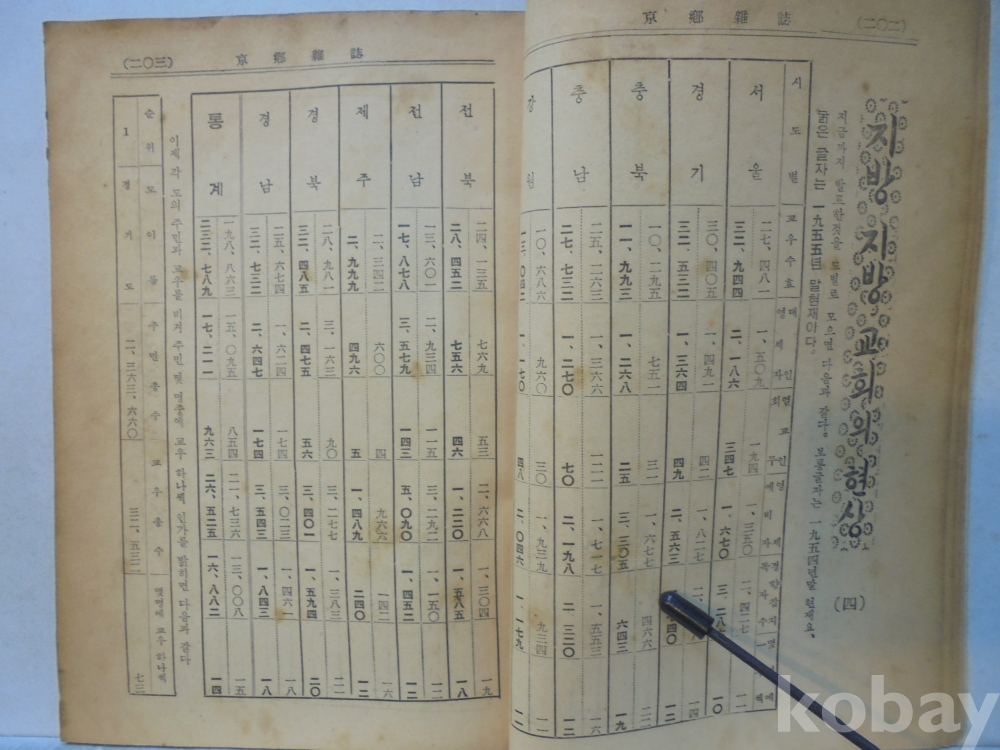 京鄕雜誌
(二〇二)
지방지방교회의현상
(四)
지금까지 발표한것을 도별로 모으면 다음과 같다。보통글자는 一九五四년말 현재요、
굵은 글자는 一九五五년 말현재이다。
시도별 교우수효
서울 二七、四八一 一、五〇九 一九四 一、三五〇 二、四二七 一一
三二、九四四 二、一八六 三四七 一、六七〇 一〇
경기 三〇、四〇五 一、四九一 四二 一、八二七 一四
三二、五三二 一、三六四 四九 二、五六三 一二
충북 一〇、二九五 七五一 三一 一、六七七 四六六 二二
一一、九九三 一、二六八 二五 三、三〇五 六四三 一九
충남 二五、二六三 一、三六六 一二一 一、七一七 一、五五三 一六
二七、七三二 一、二七〇 七〇 二、一九八 二、三二〇 一二
강원 一〇、六八六 九六〇 三〇 一、九三九 九三四 一一
四八 二、〇四六 一、一七九 一一
京鄕雜誌
(二〇三)
전북 二四、一三五 七六九 五三 二、六六八 一、三〇四 一九
二八、四五二 七五六 四六 一、二二〇 一、五八五 一八
전남 一三、六〇一 二、九三四 一一五 三、二九二 一、一五〇 一二
一七、八七八 三、五七九 一四三 五、〇九〇 一、四五二 一二
제주 二、三四二 六〇〇 四 九六六 一四二 一六
二、九九九 四九六 五 一、四八九 二四〇 一二
경북 二八、九八一 一、六三三 九〇 三、二七七 一、三八三 二一
三二、四八五 二、四七五 五六 三、四〇一 一、五九四 二〇
경남 二五、六七四 一、六二四 一七四 三、〇二三 一、四六一 一八
三二、七三二 二、六四七 一七四 三、五四三 一、八四三 一八
통계 一九八、八六三 一五、〇九五 八五四 二一、七三六 一三、〇〇八 一五
二三三、七八九 一七、二一一 九六三 二六、五二五 一六、八八二 一四
이제 각 도의 주민과 교우를 비겨 주민 몇 명중에 교우 하나씩 인가를 밝히면 다음과 같다
순위 도이름 주민총수 교우총수 몇명에 교우 하나씩
1 경기도 二、三六三、六六〇 三二、五三二 七三
kobay